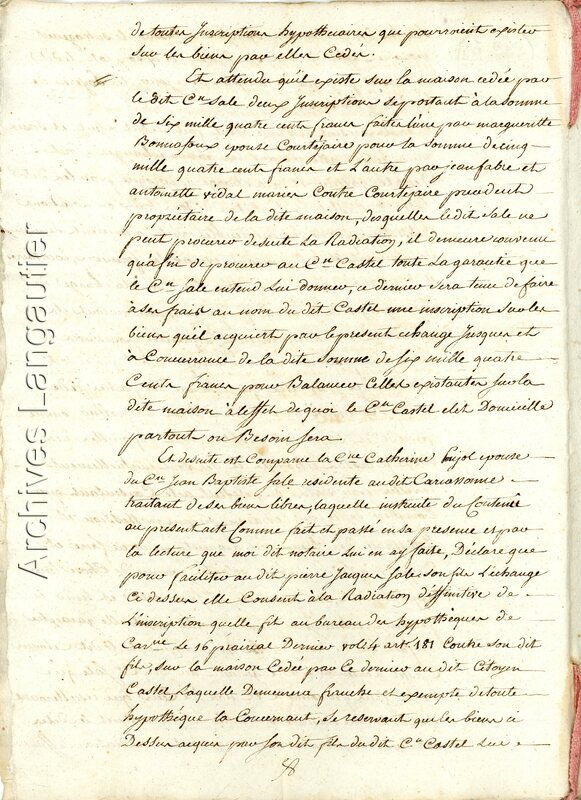 de toutes Inscriptions hypothecaires que pourroient exister
sur les biens par elles Cedés.
Et attendu quil existe sur la maison cedée par
le dit Cen Sale deux Inscriptions se portant à la somme
de Six mille quatre cents francs faites l'une par margueritte
Bonnafoux epouse Courtéjaire pour la somme de cinq
mille quatre cents francs et L'autre par jean fabre et
antoinette vidal mariés Contre Courtéjaire precedent
propriétaire de la dite maison, desquelles le dit Sale ne
peut procurer de suite La Radiation, il demeure convenu
qu'afin de procurer au Cen Castel toute La garantie que
le Cen Sale entend Lui donner, ce dernier sera tenu de faire
à ses frais au nom du dit Castel une inscription sur les
biens qu'il acquiert par le present echange Jusques et
à Concurrance de la dite Somme de six mille quatre
Cents francs pour Balancer Celles existantes sur la
dite maison à l'effet de quoi le Cen Castel elit Domicille
partout ou Besoin sera
Et de suite est Comparue la Cne Catherine Pujol epouse
du Cen Jean Baptiste Sale residente au dit Carcassonne
traitant de ses biens libres, laquelle instruite du Contenu
au present acte Comme fait et passé en sa presence et par
la lecture que moi dit notaire Lui en ay faite, Déclare que
pour faciliter au dit pierre Jacques Sale son fils L'echange
Ci dessus elle Consent à la Radiation deffinitive de
L'inscription quelle fit au bureau des hypothèques de
Carne Le 16 prairial Dernier vol: 4 art. 181 Contre son dit
fils, sur la maison Cedée par Ce dernier au dit Citoyen
Castel, Laquelle Demeurera franche et exempte de toute
hypothéque la Concernant, se reservant que les biens ci
Dessus acquis par son dit fils du dit Cen Castel Lui
Archives Langautier